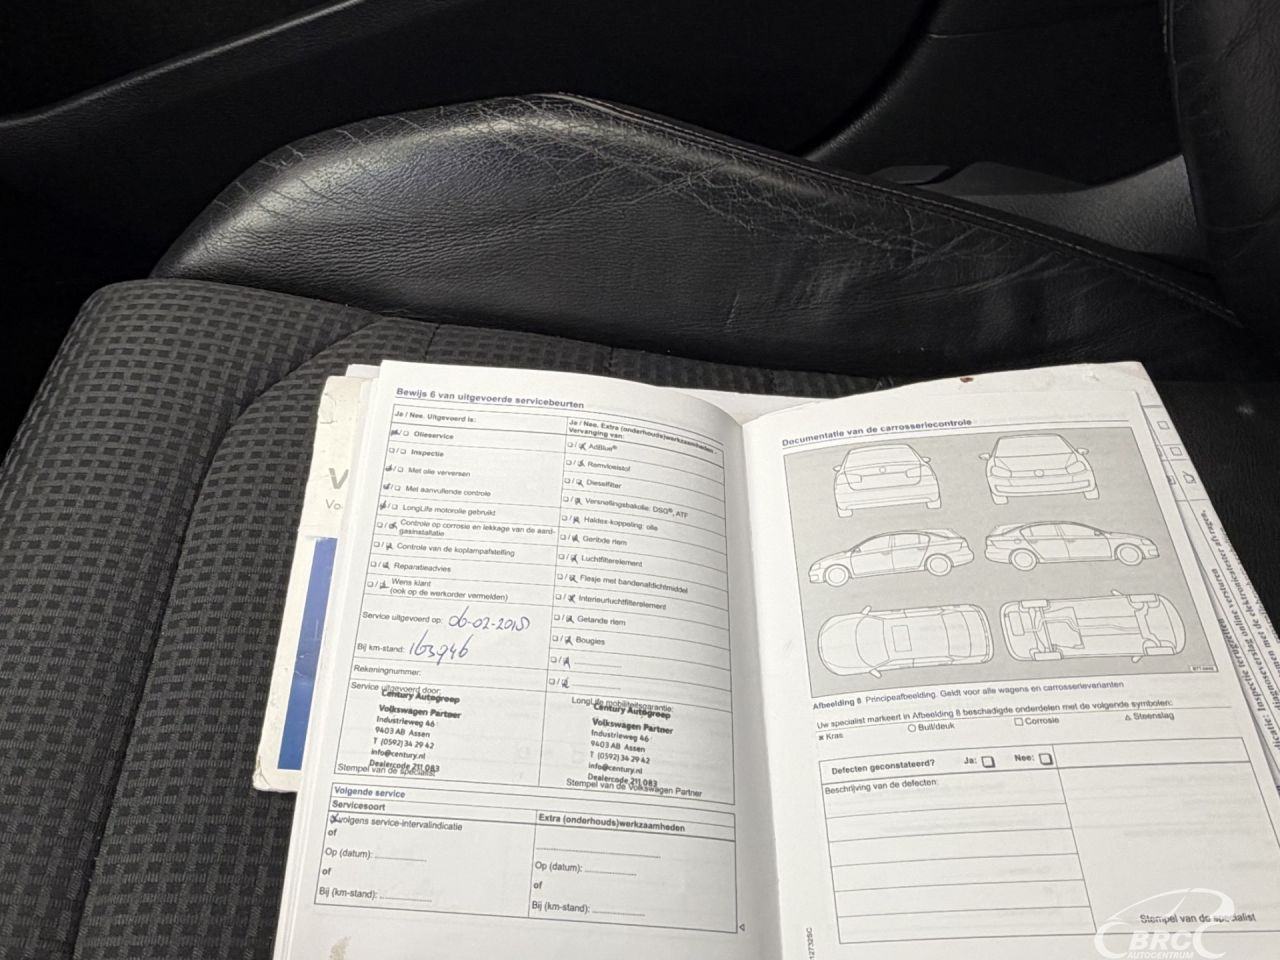 Bewijs 6 van uitgevoerde servicebeurten
Ja / Nee. Uitgevoerd is:
Olieservice
Inspectie
Met olie verversen
Met aanvullende controle
LongLife motorolie gebruikt
Controle op corrosie en lekkage van de aard-
gasinstallatie
Controle van de koplampafstelling
Reparatieadvies
Wens klant
(ook op de werkorder vermelden)
Ja / Nee. Extra (onderhouds)werkzaamheden -
Vervanging van:
AdBlue®
Remvloeistof
Dieselfilter
Versnellingsbakolie: DSG®, ATF
Haldex-koppeling: olie
Geribde riem
Luchtfilterelement
Flesje met bandenafdichtmiddel
Interieurluchtfilterelement
Getande riem
Bougies
Service uitgevoerd op: 06-02-2015
Bij km-stand: 163946
Rekeningnummer:
Service uitgevoerd door:
Century Autogroep
Volkswagen Partner
Industrieweg 46
9403 AB Assen
T (0592) 34 29 42
info@century.nl
Dealercode 211 083
Stempel van de specialist
LongLife mobiliteitsgarantie:
Century Autogroep
Volkswagen Partner
Industrieweg 46
9403 AB Assen
T (0592) 34 29 42
info@century.nl
Dealercode 211 083
Stempel van de Volkswagen Partner
Volgende service
Servicesoort
volgens service-intervalindicatie
of
Op (datum):
of
Bij (km-stand):
Extra (onderhouds)werkzaamheden
Op (datum):
of
Bij (km-stand):
Documentatie van de carrosseriecontrole
Afbeelding 8 Principeafbeelding. Geldt voor alle wagens en carrosserievarianten
Uw specialist markeert in Afbeelding 8 beschadigde onderdelen met de volgende symbolen:
Kras
Buil/deuk
Corrosie
Steenslag
Defecten geconstateerd? Ja: Nee:
Beschrijving van de defecten:
Stempel van de specialist
BRC
AUTOCENTRUM